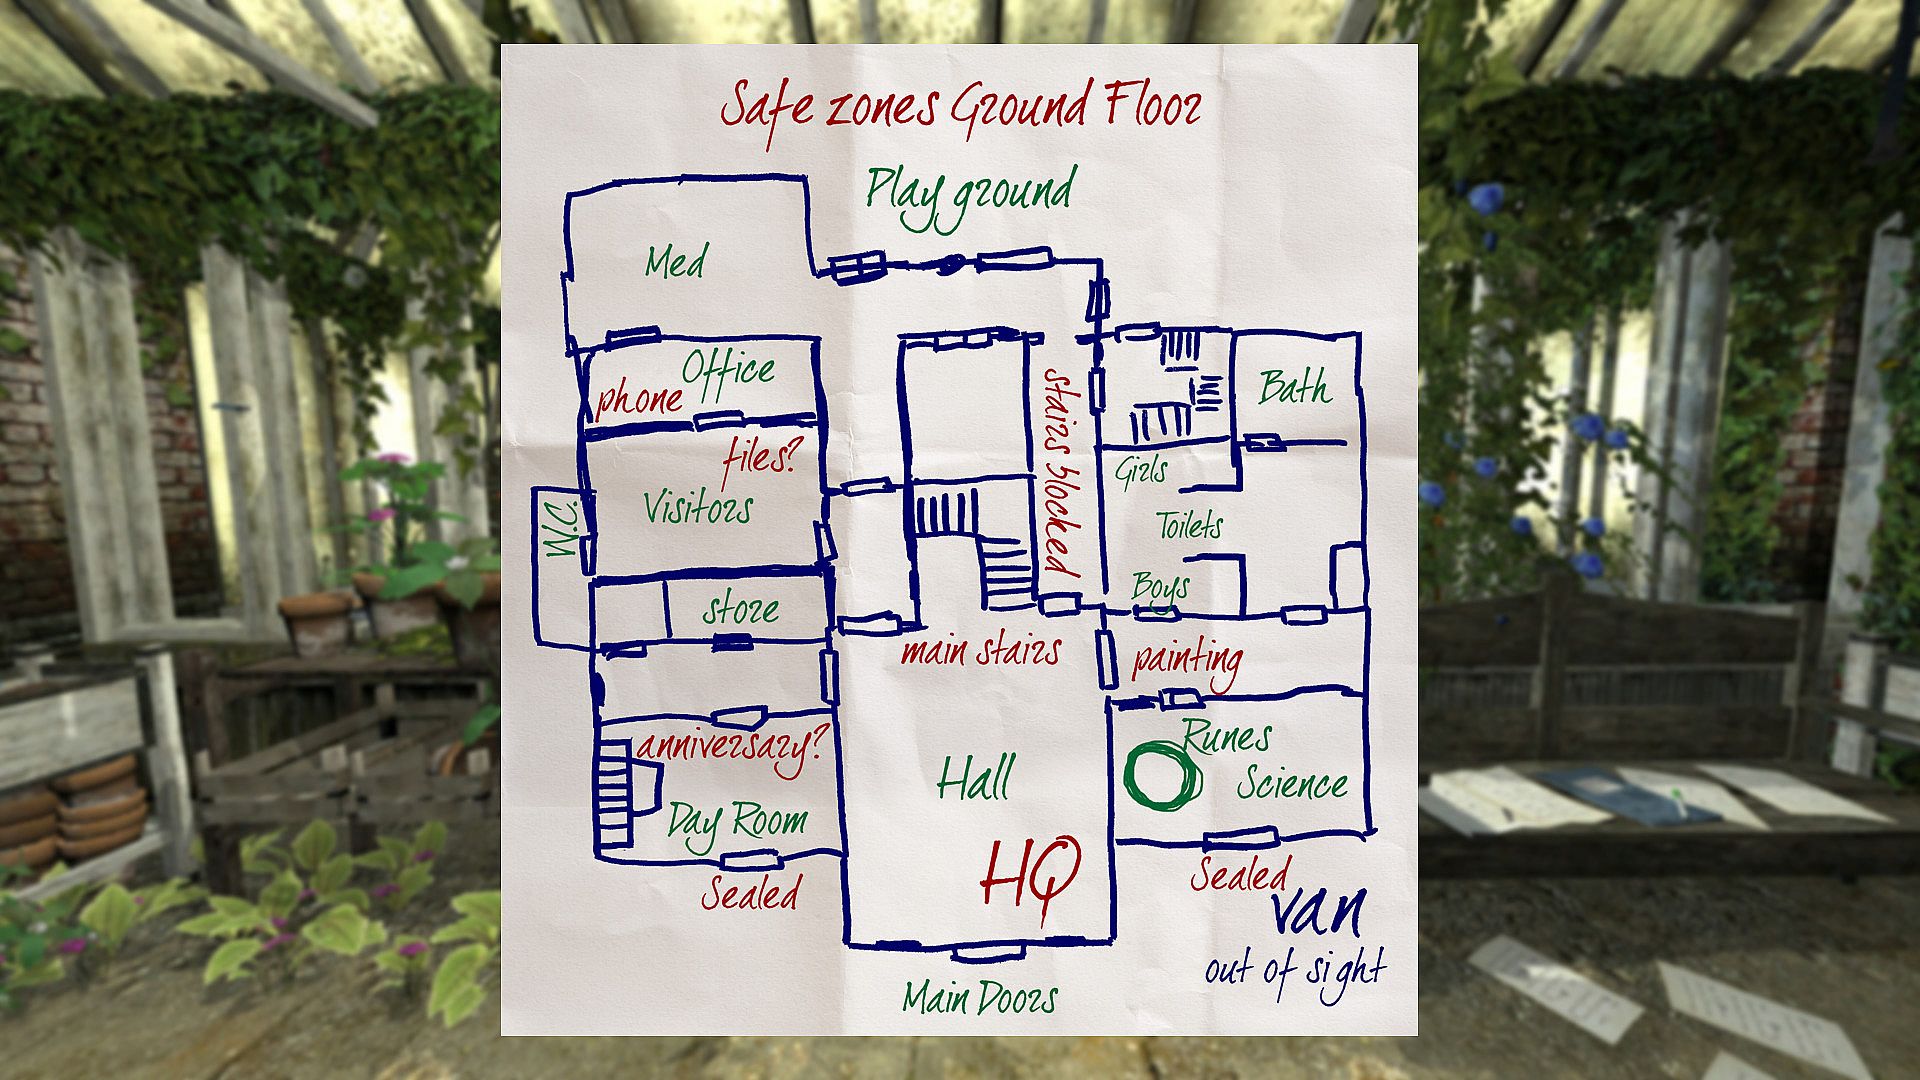 Safe zones Ground Floor
Play ground
Med
Office
phone
files?
Visitors
W.C.
store
anniversary?
Day Room
Sealed
stairs blocked
main stairs
Hall
HQ
Main Doors
Bath
Girls
Toilets
Boys
painting
Runes
Science
Sealed
van
out of sight